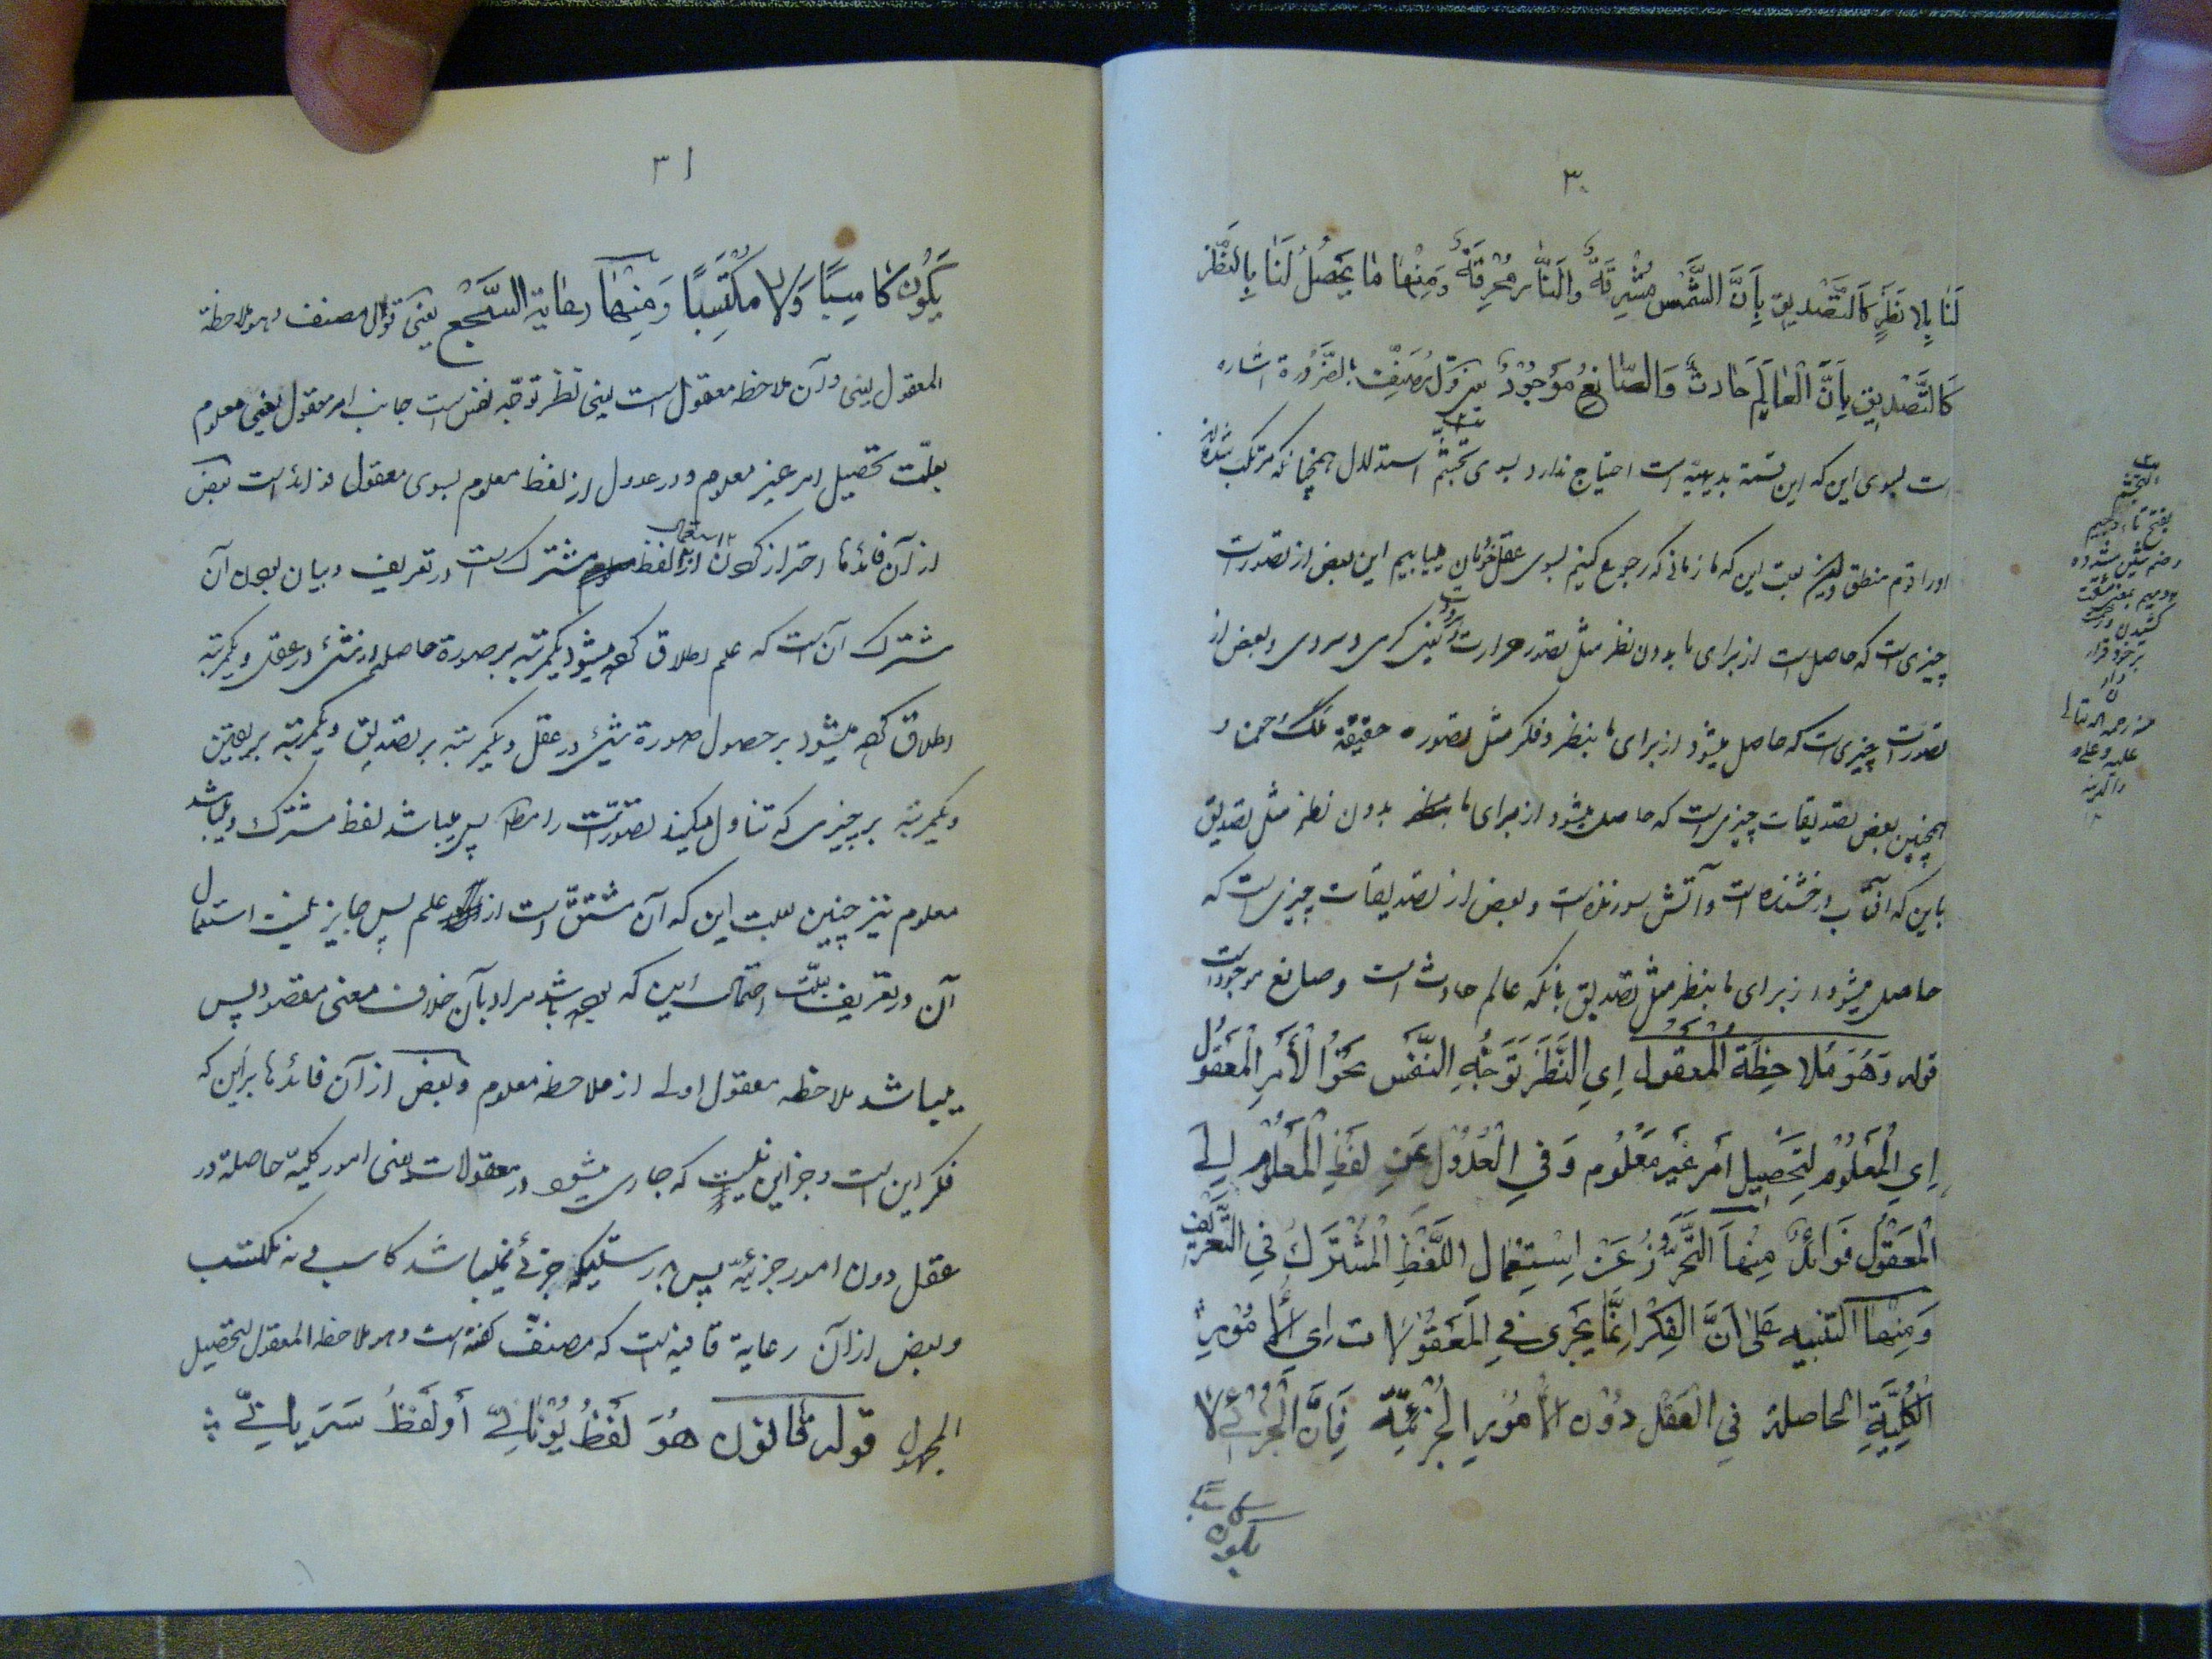 ۳۰
لَنَا بِلا نَظَرٍ كَالتَّصْدِيقِ بِاَنَّ الشَّمْسَ مُشْرِقَةٌ وَالنَّارَ مُحْرِقَةٌ وَمِنْها ما يَحْصُلُ لَنَا بِالنَّظَرِ
كَالتَّصْدِيقِ بِاَنَّ الْعالَمَ حادِثٌ وَالصّانِعُ مَوْجُودٌ يعنى قول مُصَنِّف بالضَّرُورة اشاره
است بسوى اين كه اين قسمة بديهيّه است احتياج ندارد بسوى تجشّم استدلال همچنانكه مرتكب شده‌اند
اورا قوم منطقيين بعلت اين كه ما زمانى كه رجوع كنيم بسوى عقل خودمان ميابيم اين بعض از تصورات
چيزى است كه حاصل است از براى ما بدون نظر مثل تصور حرارت و برودت يعنى گرمى و سردى و بعض از
تصورات چيزى است كه حاصل ميشود از براى ما بنظر و فكر مثل تصور حقيقة ملك و جن و
همچنين بعض تصديقات چيزى است كه حاصل ميشود از براى ما بدون نظر مثل تصديق
باين كه افتاب درخشنده است و آتش سوزنده است و بعض از تصديقات چيزى است كه
حاصل ميشود از براى ما بنظر مثل تصديق بانكه عالم حادث است و صانع موجود است
قوله وَهُوَ مُلاحِظَةُ الْمَعْقُولِ اِي النَّظَرُ تَوَجُّهِ النَّفْسِ نَحْوَ الْأَمْرِ الْمَعْقُولِ
اِي الْمَعْلُومِ لِتَحْصِيلِ أَمْرٍ غَيْرِ مَعْلُومٍ وَفي الْعُدُولِ عَنِ لَفْظِ الْمَعْلُومِ اِلى
الْمَعْقُولِ فَوَائِدُ مِنْها التَّحَرُّزُ عَنْ اِسْتِعْمال اللَّفْظِ الْمُشْتَرَكِ في التَّعْرِيفِ
وَمِنْها التّنبيه عَلى اَنَّ الفِكْرَ اِنَّما يَجْرى في الْمَعْقُولات اِي الْأُمُورِ
الْكُلِّيَّةِ الحاصلة في العَقْل دُون الأمُورِ الْجُزْئِيَّة فَاِنَّ الْجُزْئي لا
يكون كاسبًا
التجشّم
بفتح تاء وجيم
وضم شين مشدده
وميم بمعنى مشقت
كشيدن
بر خود قرار
دادن
منه رحمه الله تعالى
عليه وعلى
والديه
۳۱
يَكُون كاسِبًا وَلا مُكْتَسِبًا وَمِنْها رعاية السَّجْع يعنى قول مصنف وهو ملاحظة
المعقول يعنى وآن ملاحظه معقول است يعنى نظر توجّه نفس است جانب امر معقول يعنى معلوم
بعلّت تحصيل امر غير معلوم و در عدول از لفظ معلوم بسوى معقول فوائد است بعض
از آن فائدها احتراز كردن از استعمال لفظ مشترك است در تعريف و بيان بودن آن
مشترك آن است كه علم اطلاق كرده ميشود يكمرتبه بر صورة حاصله از شئ در عقل و يكمرتبه
اطلاق كرده ميشود بر حصول صورة شئ در عقل و يكمرتبه بر تصديق و يكمرتبه بر يقين
و يكمرتبه بر چيزى كه تناول ميكند تصورات را پس ميباشد لفظ مشترك و ميباشد
معلوم نيز چنين بعلت اين كه آن مشتقّ است از علم پس جايز نيست استعمال
آن در تعريف بعلّت احتمال اين كه بوده باشد مراد بآن خلاف معنى مقصود پس
ميباشد ملاحظه معقول اولى از ملاحظه معلوم و بعض از آن فائدها براين كه
فكر اين است و جز اين نيست كه جارى ميشود در معقولات يعنى امور كليّة حاصلة در
عقل دون امور جزئيّة پس بدرستيكه جزئي نميباشد كاسب و نه مكتسب
و بعض از آن رعاية قافيه است كه مصنفّ گفته است وهو ملاحظة المعقول لتحصيل
المجهول قوله قانون هُوَ لَفْظُ يُونانِيّ أَو لَفْظُ سَرَيانيّ